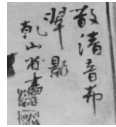 散清音布
翠影
乾山省書